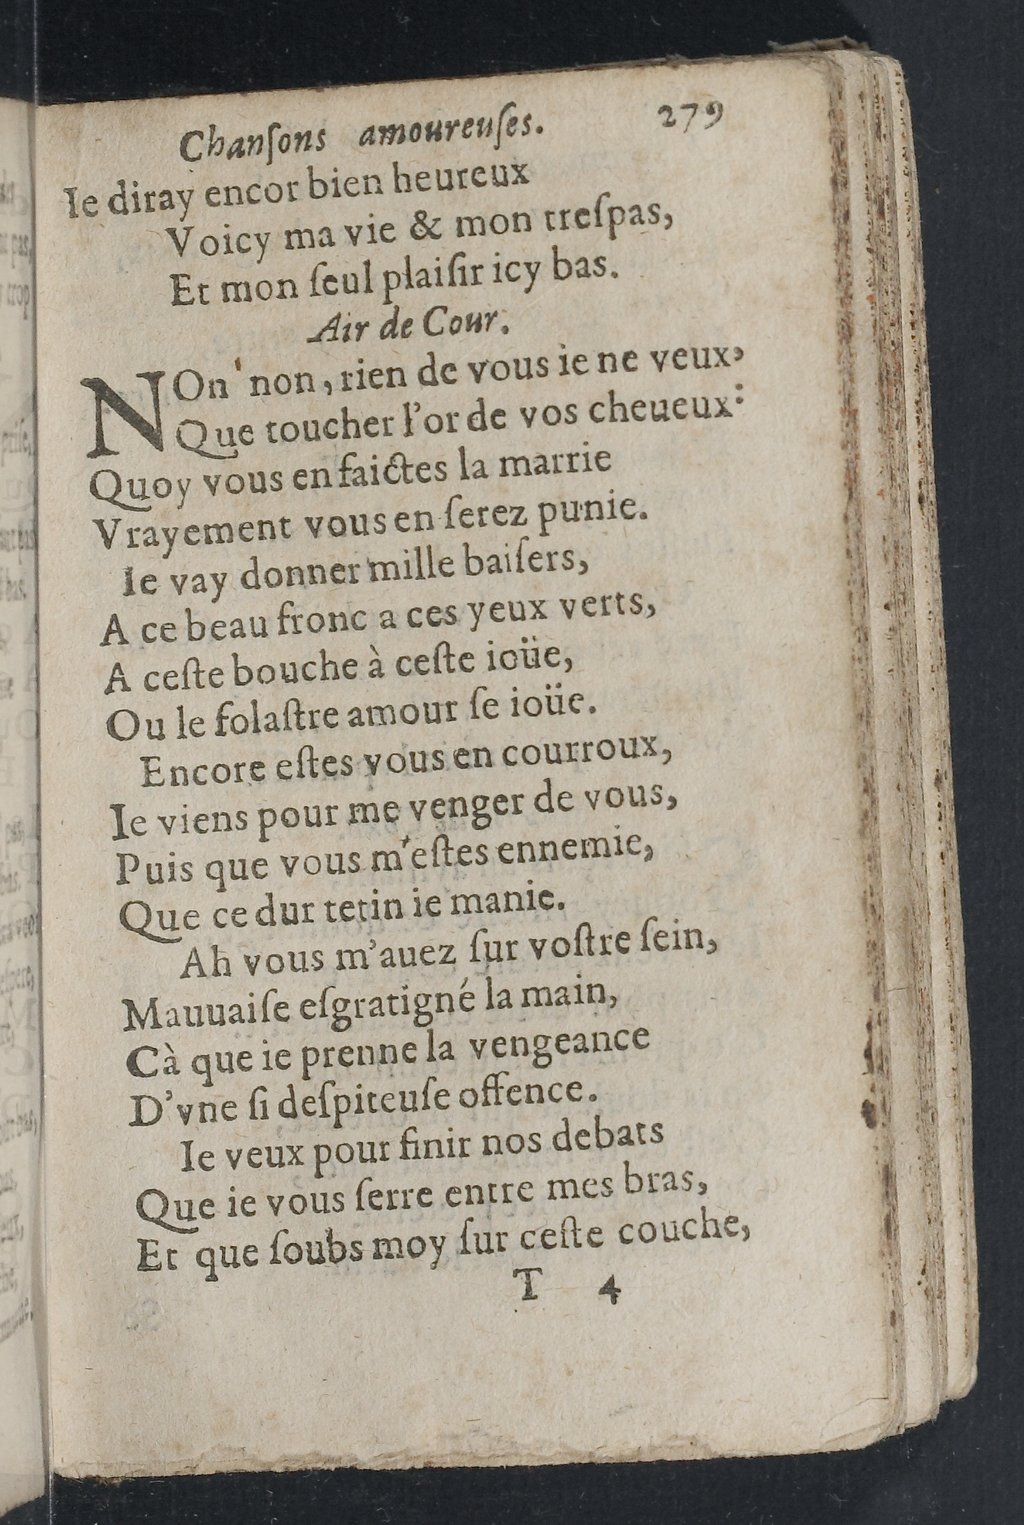 Chanſons amoureuſes. 279
Ie diray encor bien heureux
Voicy ma vie & mon treſpas,
Et mon ſeul plaiſir icy bas.
Air de Cour.
NOn non, rien de vous ie ne veux,
Que toucher l'or de vos cheueux:
Quoy vous en faictes la marrie
Vrayement vous en ſerez punie.
Ie vay donner mille baiſers,
A ce beau fronc a ces yeux verts,
A ceſte bouche à ceſte ioüe,
Ou le folaſtre amour ſe ioüe.
Encore eſtes vous en courroux,
Ie viens pour me venger de vous,
Puis que vous m'eſtes ennemie,
Que ce dur tetin ie manie.
Ah vous m'auez ſur voſtre ſein,
Mauuaiſe eſgratigné la main,
Cà que ie prenne la vengeance
D'vne ſi deſpiteuſe offence.
Ie veux pour finir nos debats
Que ie vous ſerre entre mes bras,
Et que ſoubs moy ſur ceſte couche,
T 4